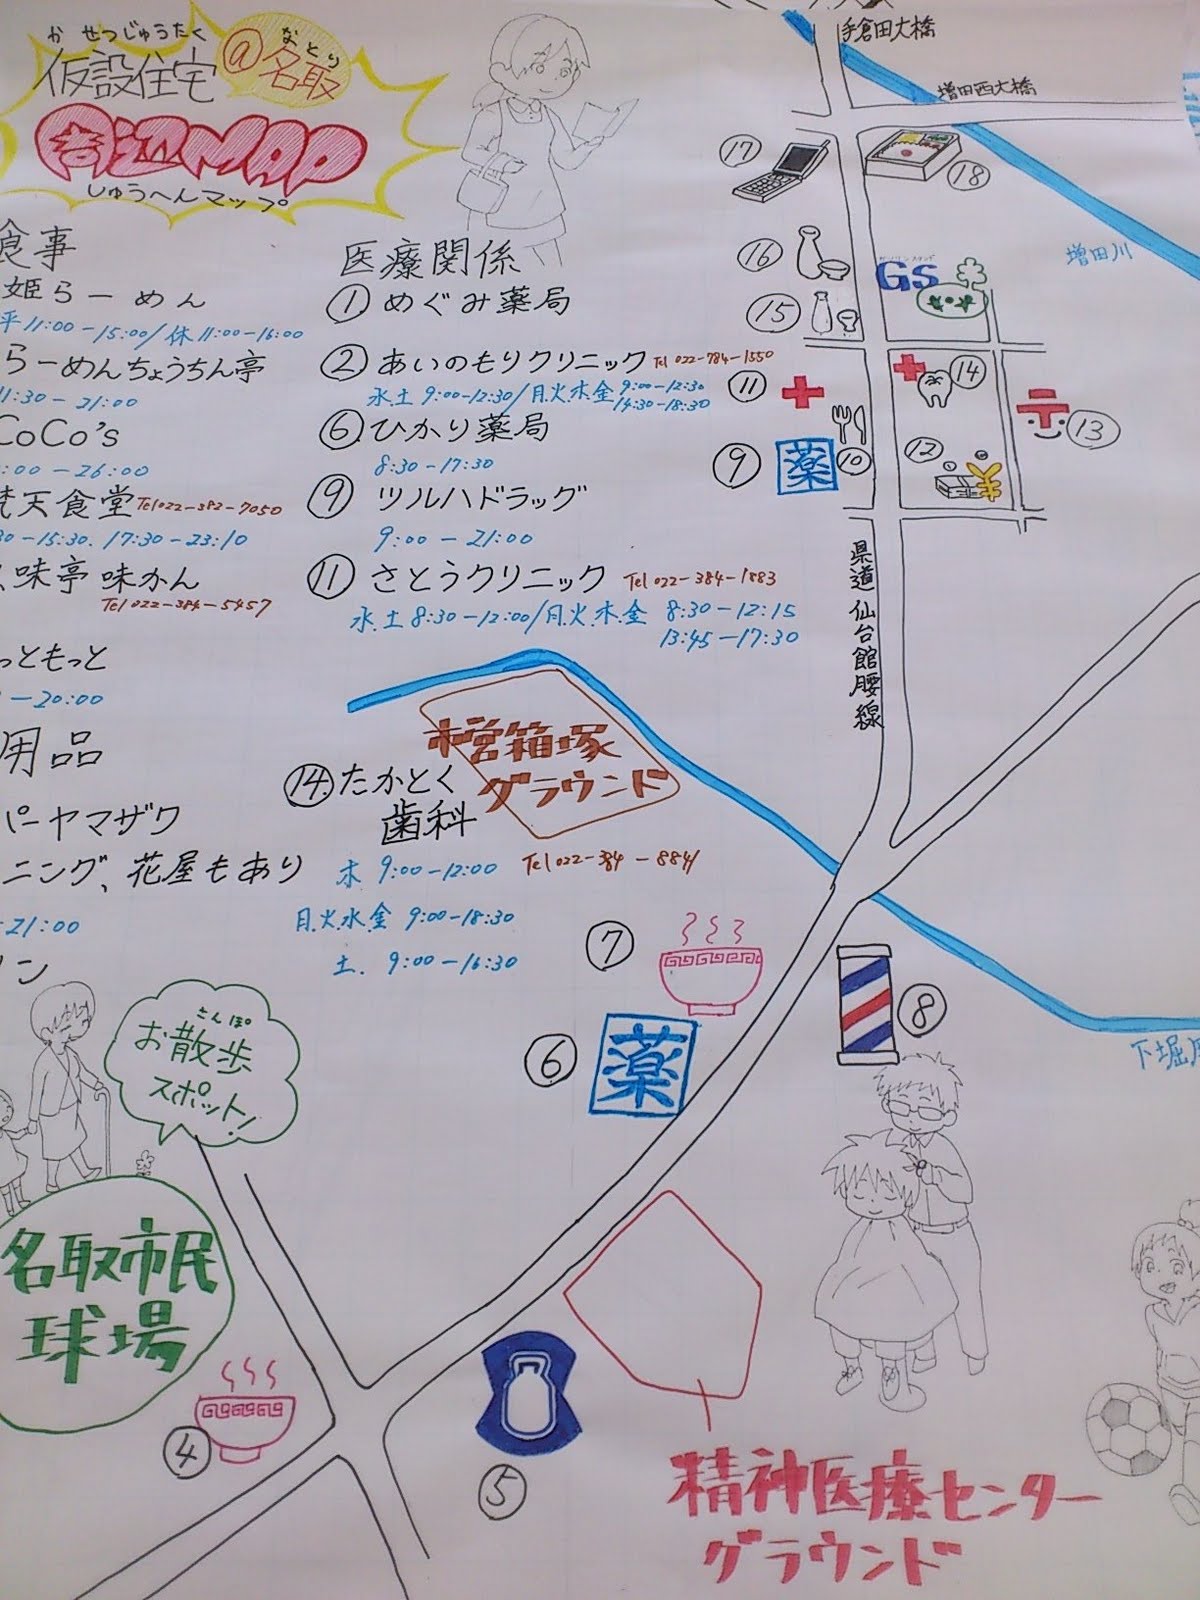 かせつじゅうたく
仮設住宅
@
なとり
名取
周辺MAP
しゅうへんマップ
食事
姫らーめん
平11:00-15:00/休11:00-16:00
らーめんちょうちん亭
11:30-21:00
CoCo's
:00-26:00
梵天食堂 Tel022-382-7050
30-15:30. 17:30-23:10
味亭 味かん
Tel022-384-5457
っともっと
-20:00
用品
パーヤマザワ
ニング、花屋もあり
-21:00
ソン
医療関係
①めぐみ薬局
②あいのもりクリニック Tel 022-784-1550
水土 9:00-12:30/月火木金 9:00-12:30
14:30-18:30
⑥ひかり薬局
8:30-17:30
⑨ツルハドラッグ
9:00-21:00
⑪さとうクリニック Tel 022-384-1883
水.土 8:30-12:00/月.火.木.金 8:30-12:15
13:45-17:30
⑭たかとく
歯科
木 9:00-12:00 Tel022-384-8841
月.火.水.金 9:00-18:30
土. 9:00-16:30
手倉田大橋
増田西大橋
⑰
⑱
増田川
⑯
ガソリンスタンド
GS
⑮
⑪
⑭
⑬
⑨
薬
⑩
⑫
県道 仙台館腰線
箱塚
グラウンド
⑦
⑧
⑥
薬
下堀
さんぽ
お散歩
スポット!
名取市民
球場
④
⑤
精神医療センター
グラウンド